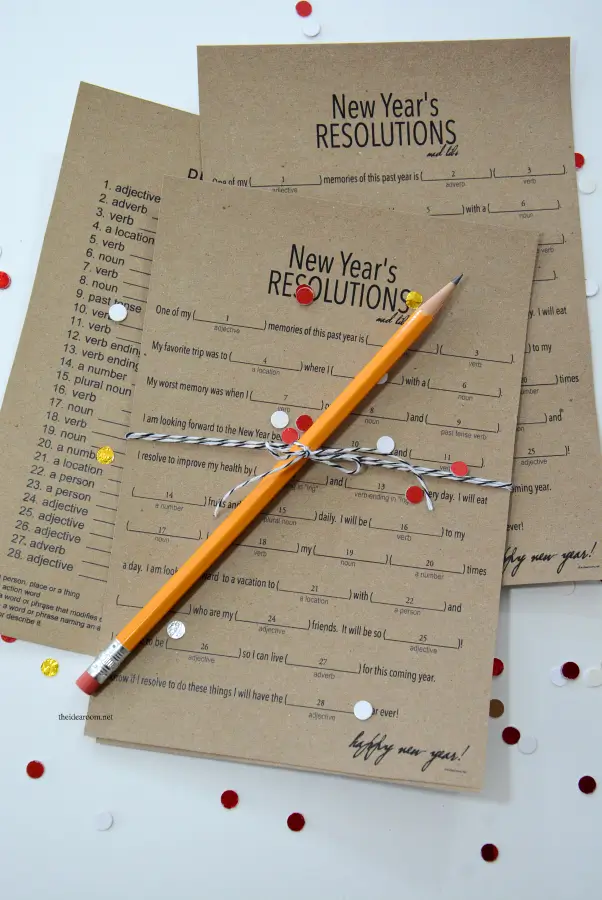 New Year's
RESOLUTIONS
mad libs
One of my ( 1 ) memories of this past year is ( 2 ) ( 3
adjective adverb verb
5 ) with a ( 6
noun
. I will eat
to my
times
and
25 )!
adjective
coming year.
ever!
happy new year!
1. adjective
2. adverb
3. verb
4. a location
5. verb
6. noun
7. verb
8. noun
9. past tense
10. verb
11. verb
12. verb ending
13. verb ending
14. a number
15. plural noun
16. verb
17. noun
18. verb
19. noun
20. a number
21. a location
22. a person
23. a person
24. adjective
25. adjective
26. adjective
27. adverb
28. adjective
person, place or a thing
action word
a word or phrase that modifies
a word or phrase naming an
or describe it
New Year's
RESOLUTIONS
mad libs
One of my ( 1 ) memories of this past year is ( ) ( 3 )
adjective verb
My favorite trip was to ( 4 ) where I ( ) with a ( 6 )
a location noun
My worst memory was when I ( 7 8 ) and ( 9 )
verb noun past tense verb
I am looking forward to the New Year 10 11
I resolve to improve my health by ( ) and ( 13 ) every day. I will eat
verb ending in "ing"
( 14 ) fruits and 15 ) daily. I will be ( 16 ) to my
a number plural noun verb
( 17 18 ) my ( 19 ) ( 20 ) times
noun verb noun a number
a day. I am looking forward to a vacation to ( 21 ) with ( 22 ) and
a location a person
( ) who are my ( 24 ) friends. It will be so ( 25 )!
adjective adjective
to be ( 26 ) so I can live ( 27 ) for this coming year.
adjective adverb
know if I resolve to do these things I will have the ( 28 year ever!
adjective
happy new year!
theidearoom.net